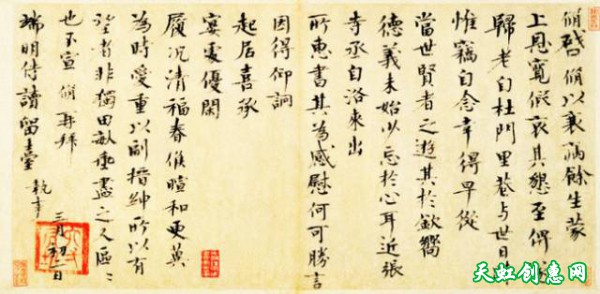 脩啓脩以衰病餘生蒙
上恩寬假哀其懇至俾遂
歸老自杜門里巷與世日疎
惟竊自念幸得早從
當世賢者之遊其於欽嚮
德義未始少忘於心耳近張
寺丞自洛來出
所惠書其為感慰何可勝言
因得仰詢
起居喜承
宴處優閑
履況清福春候暄和更冀
為時愛重以副搢紳所以有
望者非獨田畝垂盡之人區々
也不宣脩再拜
端明侍讀留臺執事
三月初二日
天虹创惠网